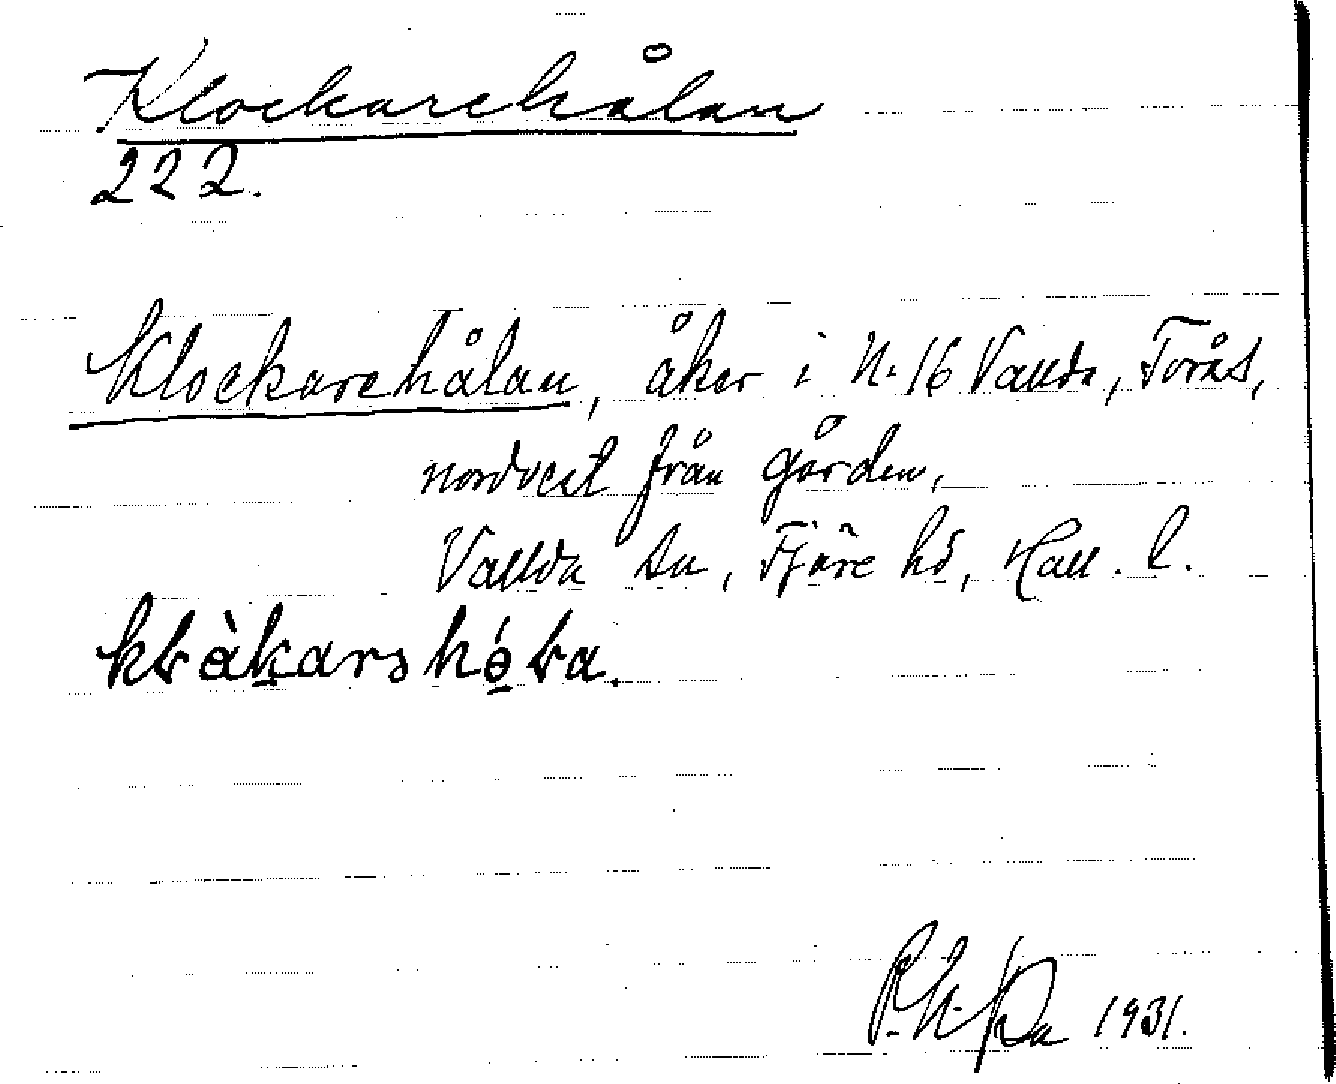 Klockarehålan
222.
Klockarehålan, åker i N. 16 Vallda, Torås,
nordvest från gården,
Vallda sn, Fjäre hd, Hall. l.
1931.